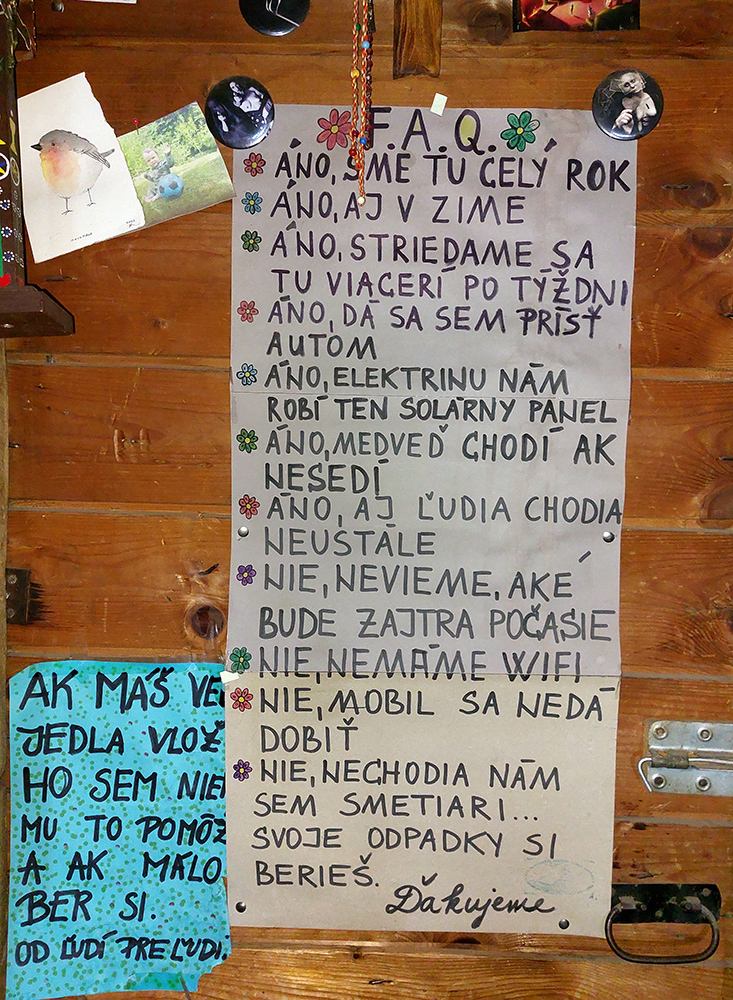 F.A.Q.
ÁNO, SME TU CELÝ ROK
ÁNO, AJ V ZIME
ÁNO, STRIEDAME SA
TU VIACERÍ PO TÝŽDNI
ÁNO, DÁ SA SEM PRÍSŤ
AUTOM
ÁNO, ELEKTRINU NÁM
ROBÍ TEN SOLÁRNY PANEL
ÁNO, MEDVEĎ CHODÍ AK
NESEDÍ
ÁNO, AJ ĽUDIA CHODIA
NEUSTÁLE
NIE, NEVIEME, AKÉ
BUDE ZAJTRA POČASIE
NIE, NEMÁME WIFI
NIE, MOBIL SA NEDÁ
DOBIŤ
NIE, NECHODIA NÁM
SEM SMETIARI...
SVOJE ODPADKY SI
BERIEŠ.
Ďakujeme
AK MÁŠ
JEDLA VLOŽ
HO SEM
MU TO
A AK MÁLO
BER SI.
OD ĽUDÍ PRE ĽUDÍ.